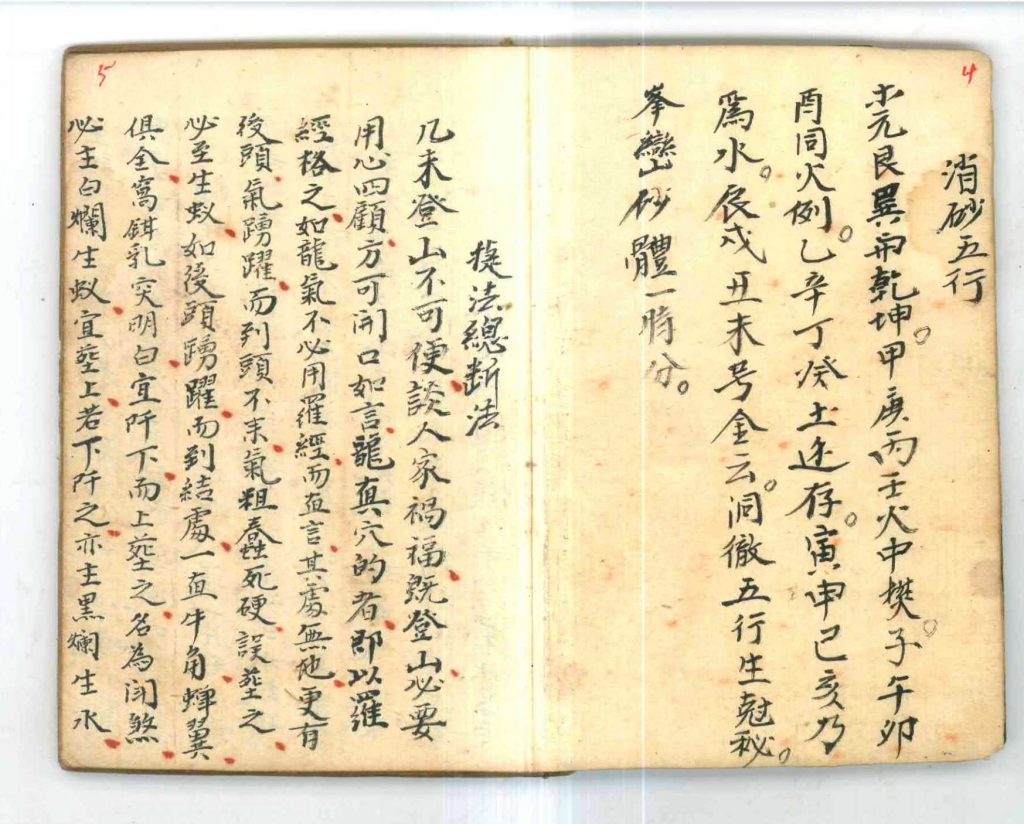 4
消砂五行
木元艮巽而乾坤。甲庚丙壬火中樊。子午卯
酉同火例。乙辛丁癸土速存。寅申巳亥乃
為水。辰戌丑未号金云。洞徹五行生尅秘。
峯巒山砂體一時分。
5
捷法總斷法
凡未登山不可便談人家禍福既登山必要
用心四顧方可開口如言龍真穴的者即以羅
經格之如龍氣不必用羅經而直言其處無他更有
後頭氣踴躍而到頭不来氣粗蠢死硬誤塟之
必至生蚁如後頭踴躍而到結處一直牛角蟬翼
俱全窩鉗乳突明白宜阡下而上塟之名為鬦煞
必主白爛生蚁宜塟上若下阡之亦主黑爛生水